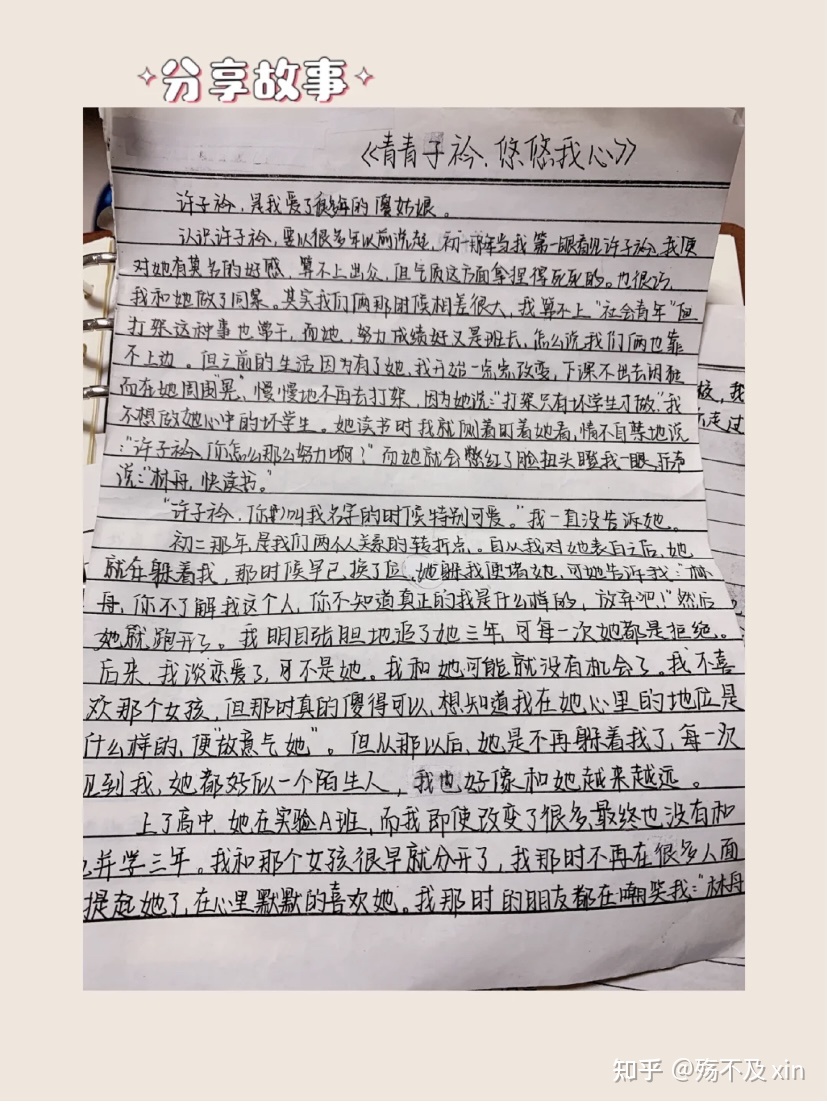 分享故事
《青青子衿、悠悠我心》
许子衿，是我爱了很多年的傻姑娘。
认识许子衿，要从很多年以前说起，初一那年当我第一眼看见许子衿，我便
对她有莫名的好感，算不上出众，但气质这方面拿捏得死死的。也很巧，
我和她做了同桌。其实我们俩那时候相差很大，我算不上“社会青年”但
打架这种事也常干，而她，努力成绩好又是班长，怎么说我们俩也靠
不上边。但之前的生活因为有了她，我开始一点点改变，下课不出去闲逛
而在她周围“晃”，慢慢地不再去打架，因为她说：“打架只有坏学生才做。”我
不想做她心中的坏学生。她读书时我就侧着盯着她看，情不自禁地说
：“许子衿，你怎么那么努力啊？”而她就会憋红了脸扭头瞪我一眼，
说：“林舟，快读书。”
“许子衿，你叫我名字的时候特别可爱。”我一直没告诉她。
初二那年，是我们两个人关系的转折点。自从我对她表白之后，她
就在躲着我，那时候早已换了位，她躲我便堵她，可她告诉我：“林
舟，你不了解我这个人，你不知道真正的我是什么样的，放弃吧！”然后
她就跑开了。我明目张胆地追了她三年，可每一次她都是拒绝。
后来，我谈恋爱了，可不是她。我和她可能就没有机会了。我不喜
欢那个女孩，但那时真的傻得可以，想知道我在她心里的地位是
什么样的，便“故意气她”。但从那以后，她是不再躲着我了，每一次
见到我，她都好似一个陌生人，我也好像和她越来越远。
上了高中，她在实验A班，而我即使改变了很多，最终也没有和
她并学三年。我和那个女孩很早就分开了，我那时不再在很多人面
提起她了，在心里默默的喜欢她。我那时的朋友都在嘲笑我：“林舟
知乎 @殇不及 xin